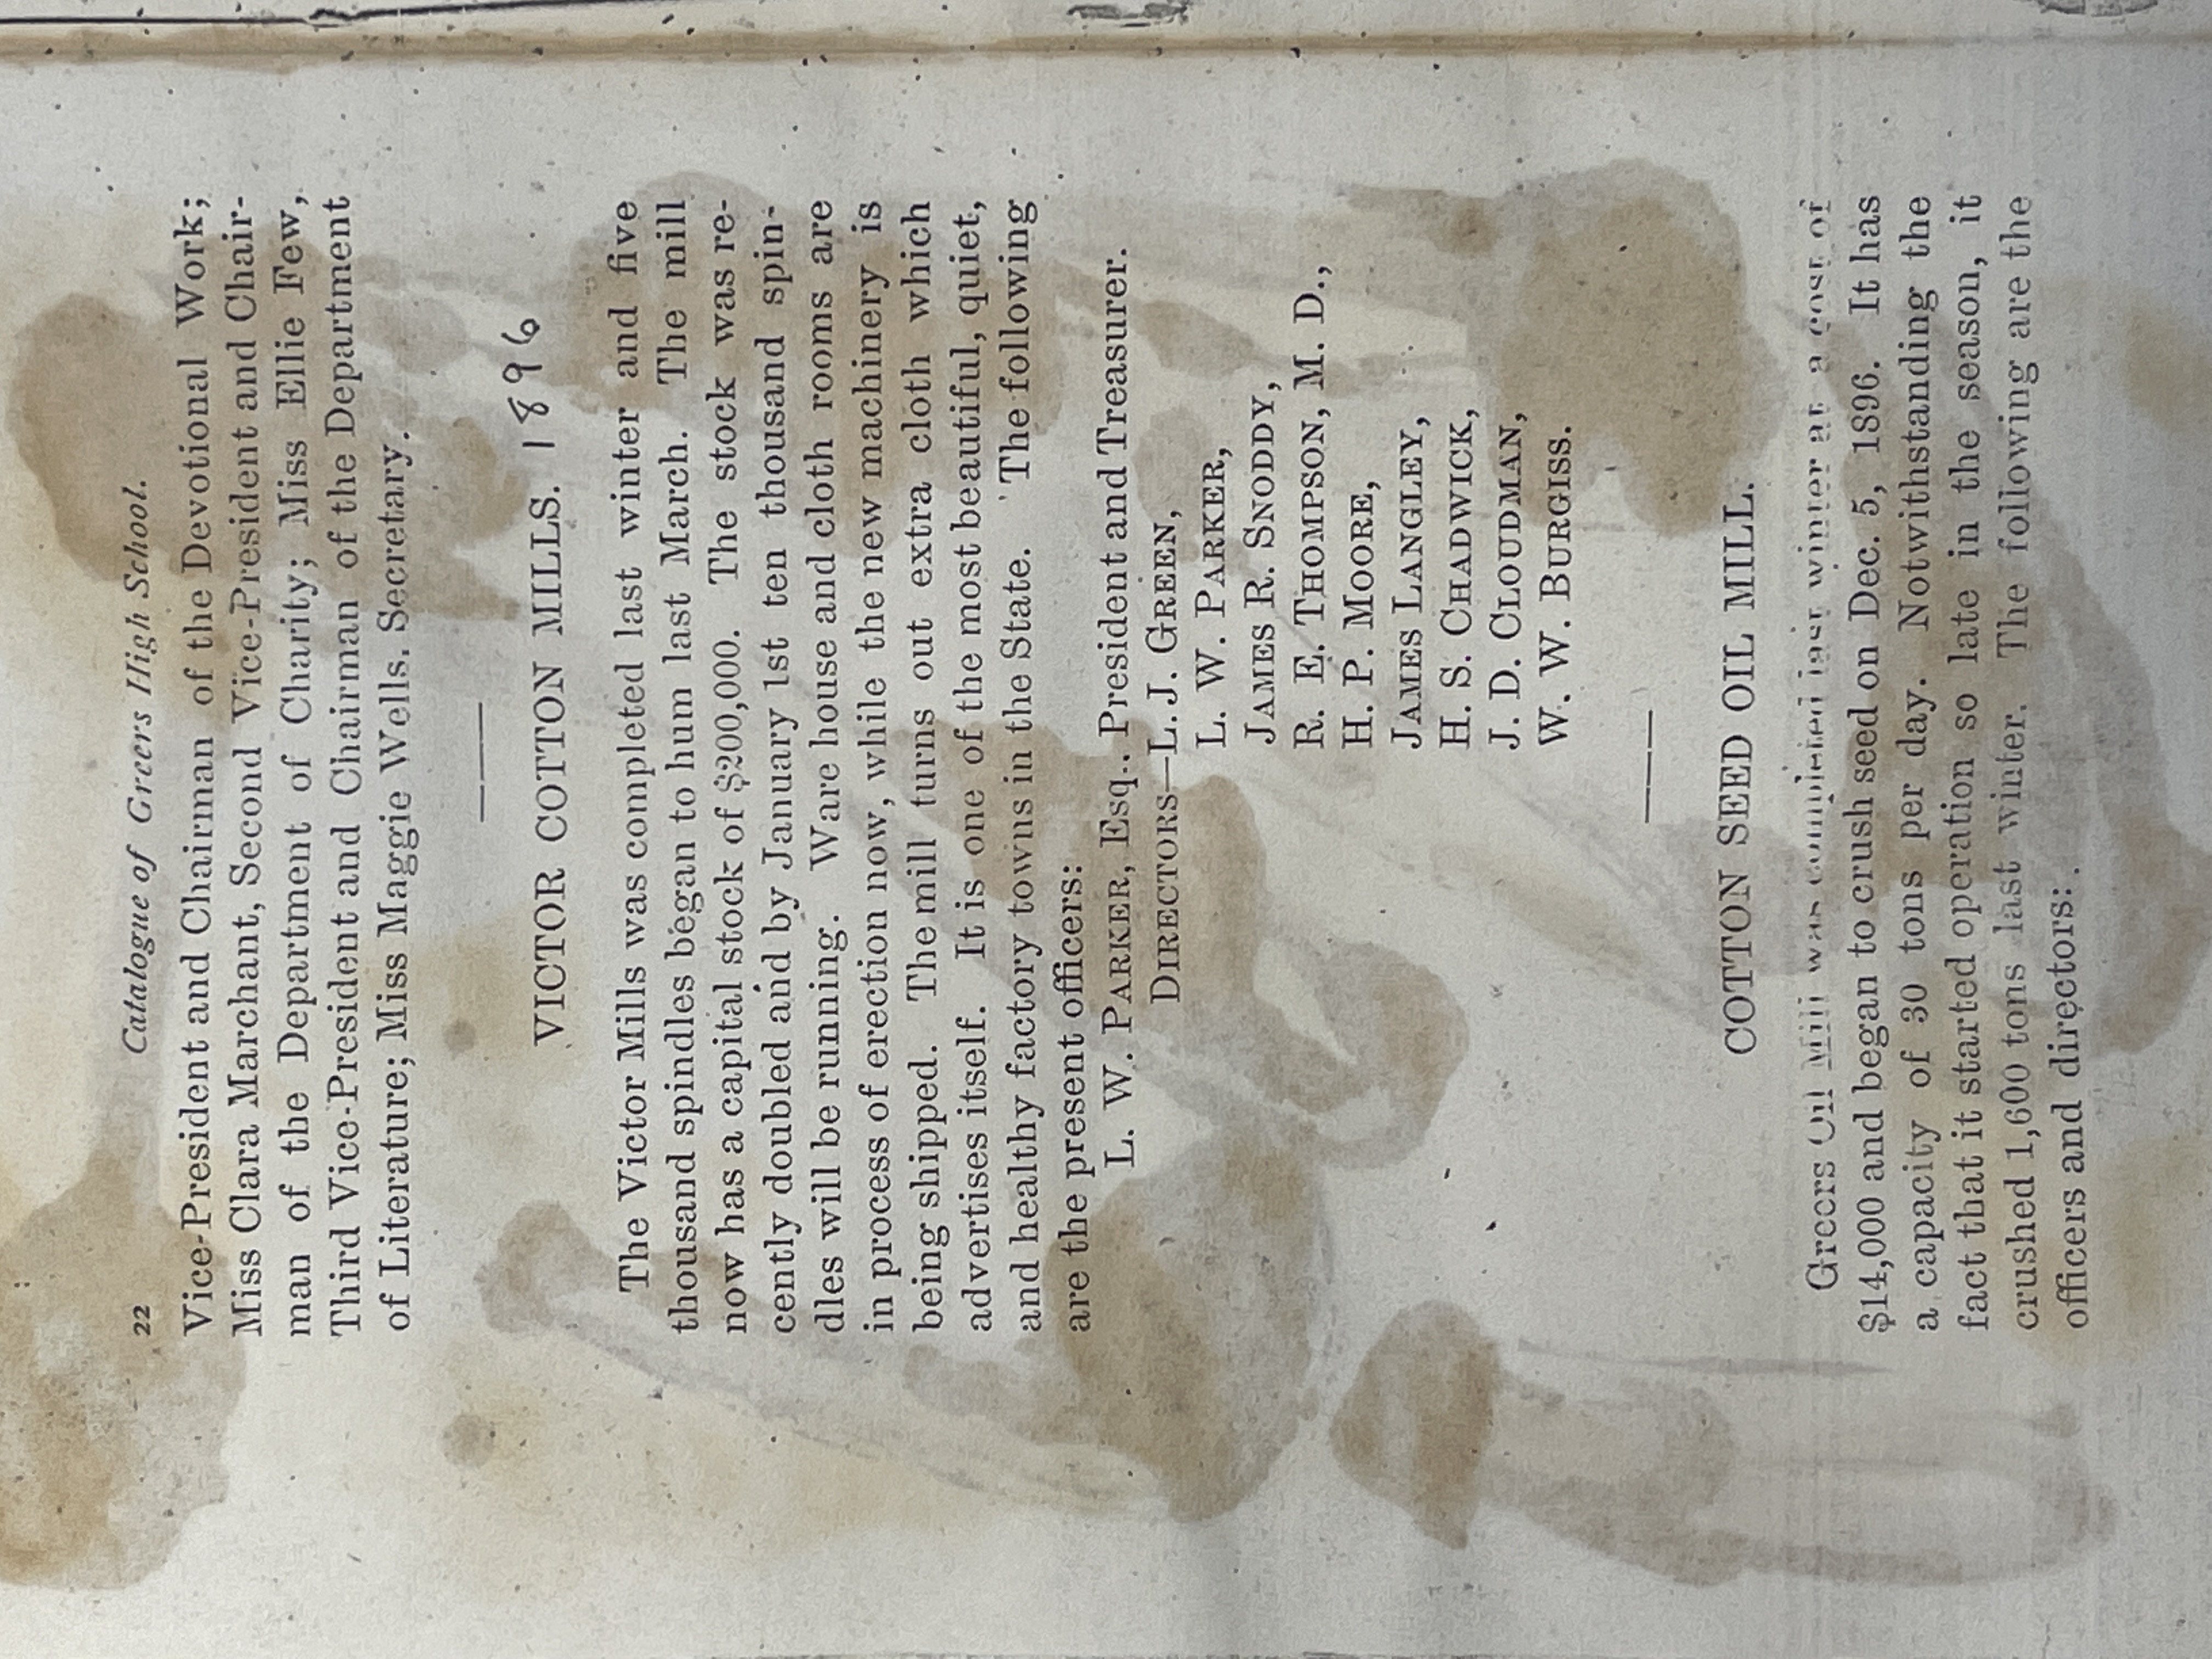 22 Catalogue of Greers High School.
Vice-President and Chairman of the Devotional Work;
Miss Clara Marchant, Second Vice-President and Chair-
man of the Department of Charity; Miss Ellie Few,
Third Vice-President and Chairman of the Department
of Literature; Miss Maggie Wells, Secretary.
VICTOR COTTON MILLS. 1896
The Victor Mills was completed last winter and five
thousand spindles began to hum last March. The mill
now has a capital stock of $200,000. The stock was re-
cently doubled and by January 1st ten thousand spin-
dles will be running. Ware house and cloth rooms are
in process of erection now, while the new machinery is
being shipped. The mill turns out extra cloth which
advertises itself. It is one of the most beautiful, quiet,
and healthy factory towns in the State. The following
are the present officers:
L. W. PARKER, Esq., President and Treasurer.
DIRECTORS—L. J. GREEN,
L. W. PARKER,
JAMES R. SNODDY,
R. E. THOMPSON, M. D.,
H. P. MOORE,
JAMES LANGLEY,
H. S. CHADWICK,
J. D. CLOUDMAN,
W. W. BURGISS.
COTTON SEED OIL MILL.
Greers Oil Mill was completed last winter at a cost of
$14,000 and began to crush seed on Dec. 5, 1896. It has
a capacity of 30 tons per day. Notwithstanding the
fact that it started operation so late in the season, it
crushed 1,600 tons last winter. The following are the
officers and directors: